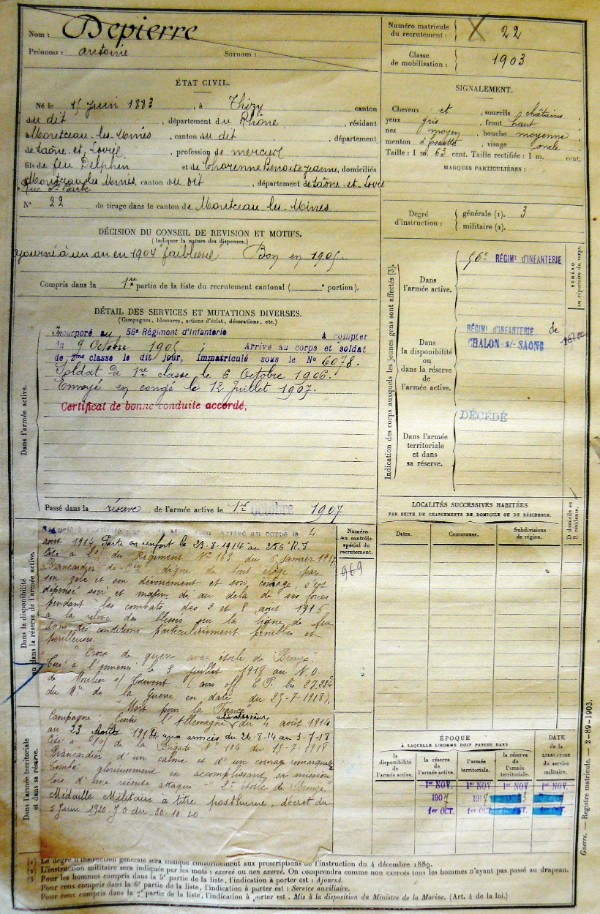 Nom : Depierre
Prénoms : antoine Surnoms :
Numéro matricule du recrutement : 22
Classe de mobilisation : 1903
ÉTAT CIVIL.
Né le 15 juin 1883, à Thizy canton
du dit, département du Rhône, résidant
à Montceau-les-Mines, canton du dit, département
de Saône-et-Loire, profession de mineur
fils de feu Delphin et de Benoite Jeanne, domiciliés
Montceau-les-Mines canton du dit, département de Saône-et-Loire
N° 22 de tirage dans le canton de Montceau-les-Mines
SIGNALEMENT.
Cheveux et sourcils châtains
yeux gris, front haut
nez moyen, bouche moyenne
menton à fossette, visage ovale
Taille : 1 m. 63 cent. Taille rectifiée : 1 m. cent.
MARQUES PARTICULIÈRES :
Degré d'instruction : générale (1). 3
militaire (2).
DÉCISION DU CONSEIL DE REVISION ET MOTIFS.
(Indiquer la nature des dispenses.)
ajourné à un an en 1904 faiblesse Bon en 1905
Compris dans la 1re partie de la liste du recrutement cantonal ( portion).
DÉTAIL DES SERVICES ET MUTATIONS DIVERSES.
(Campagnes, blessures, actions d'éclat, décorations, etc.)
Dans l'armée active.
Incorporé au 56e Régiment d'Infanterie à compter
du 9 Octobre 1905 ; Arrivé au corps et soldat
de 2ème classe le dit jour, Immatriculé sous le No 6078.
Soldat de 1re classe le 6 Octobre 1906.
Envoyé en congé le 12 Juillet 1907.
Certificat de bonne conduite accordé,
Passé dans la réserve de l'armée active le 1er octobre 1907
Indication des corps auxquels les jeunes gens sont affectés (3).
Dans l'armée active.
56e RÉGIMENT D'INFANTERIE
Dans la disponibilité ou dans la réserve de l'armée active.
RÉGIMENT D'INFANTERIE de
CHALON-s/-SAONE
DÉCÉDÉ
Dans l'armée territoriale et dans sa réserve.
Dans la disponibilité ou dans la réserve de l'armée active.
au corps le 4
août 1914 Parti en renfort le 23-8-1914 au 256 R.I.
Cité à l'O. du Régiment N° 168 du 6 janvier 191
Brancardier de digne de tout éloge par
son zèle et son dévouement et son courage s'est
dépensé soir et matin, au delà de ses forces
pendant les combats des 2 et 8 août 1915
à la relève des blessés sur la ligne de feu
dans des conditions particulièrement pénibles et
périlleuses.
"Croix de guerre avec étoile de Bronze"
Tué à l'ennemi le 3 juillet 1918 au N.O
de Moulin s/ Touvent
du Mre de la Guerre en date du 25-7-1918).
"Mort pour la France"
Campagne : Contre l'Allemagne Intérieur du 4 août 1914
au 23 août 1914 aux armées du 24-8-14 au 3-7-18
Cité à l'O. de la Brigade N° 114 du 15-7-1918
Brancardier d'un calme et d'un courage remarquable
tombé glorieusement en accomplissant sa mission
lors d'une récente attaque - 2e étoile de Bronze.
Médaille Militaire à titre posthume, décret du
2 juin 1920. J.O. du 30.10.20
Dans l'armée territoriale et dans sa réserve.
Numéro au contrôle spécial du recrutement.
969
LOCALITÉS SUCCESSIVES HABITÉES
PAR SUITE DE CHANGEMENTS DE DOMICILE OU DE RÉSIDENCE.
Dates. Communes. Subdivisions de région.
ÉPOQUE
À LAQUELLE L'HOMME DOIT PASSER DANS
DATE
de la
LIBÉRATION
du service
militaire.
disponibilité de l'armée active. la réserve de l'armée active. l'armée territoriale. la réserve de l'armée territoriale.
1er NOV. 1er NOV. 1er NOV. 1er NOV.
1er OCT. 1er OCT.
Guerre. — Registre matricule. — 2-89-1903.
(1) Le degré d'instruction générale sera indiqué conformément aux prescriptions de l'instruction du 4 décembre 1889.
(2) L'instruction militaire sera indiquée par les mots : exercé ou non exercé. On comprendra comme non exercés tous les hommes n'ayant pas passé au drapeau.
(3) Pour les hommes compris dans la 5e partie de la liste, l'indication à porter est : Ajourné.
Pour ceux compris dans la 6e partie de la liste, l'indication à porter est : Service auxiliaire.
Pour ceux compris dans la 7e partie de la liste, l'indication à porter est : Mis à la disposition du Ministre de la Marine. (Art. 4 de la loi.)